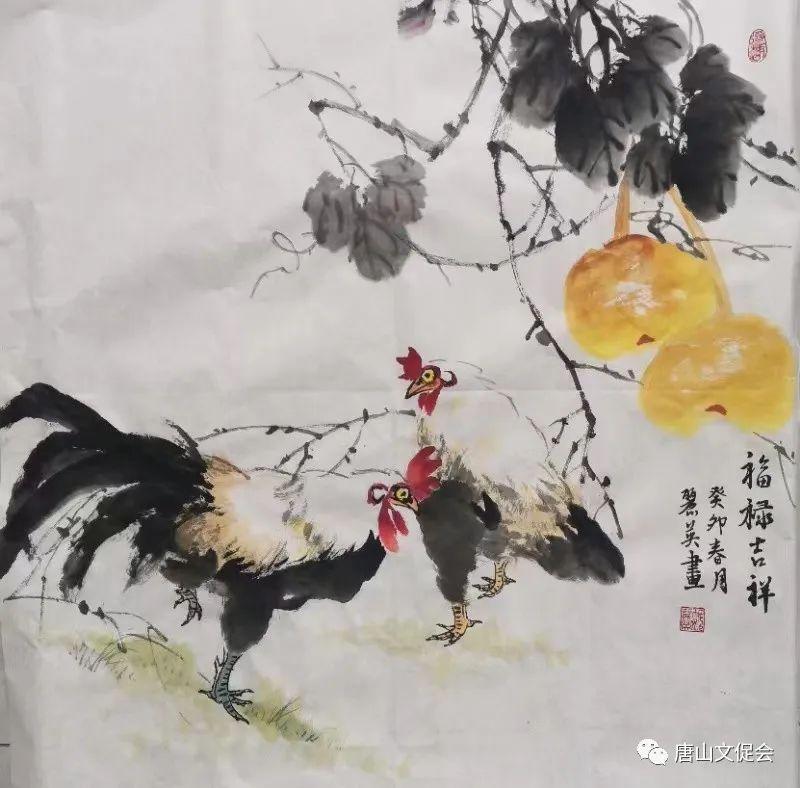 福禄吉祥
癸卯春月
碧英畫
唐山文促会